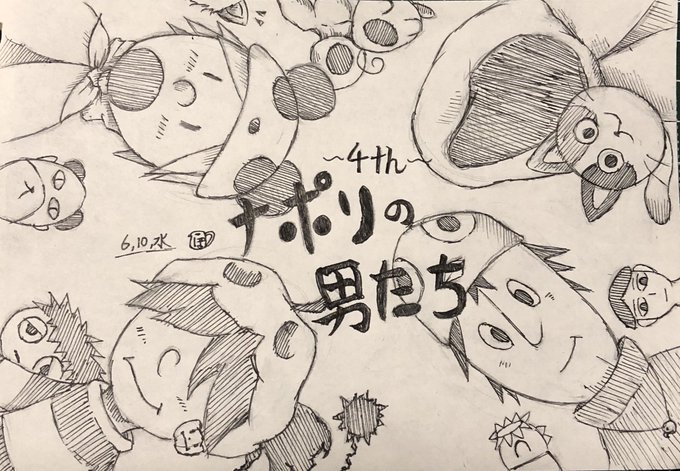 ～4th～
ナポリの
男たち
6,10,水